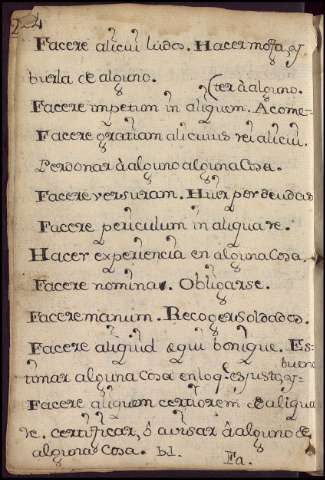 24
Facere alicui ludos. Hacer mofa, y
burla de alguno.
(ter à alguno.
Facere impetum in aliquem. Acome-
Facere gratiam alicuius rei alicui.
Perdonar à alguno alguna Cosa.
Facere versuram. Huir por deudas
Facere periculum in aliqua re.
Hacer experiencia en alguna Cosa.
Facere nomina. Obligarse.
Facere manum. Recoger soldados.
Facere aliquid equi bonique. Es-
timar alguna Cosa en lo q. es justo, y
bueno
Facere aliquem certiorem de aliqua
re. certificar, ô avisar â alguno de
alguna Cosa. b1.
Fa.